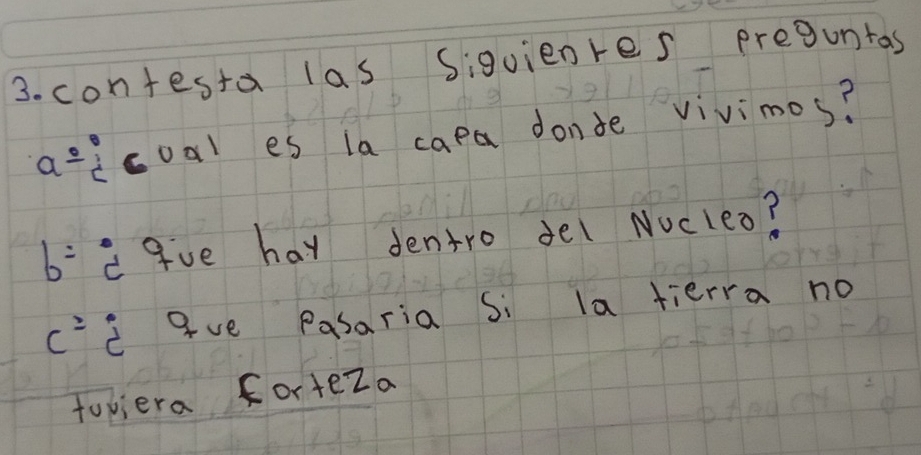 3. contesta las siguientes preguntas
a=¿cual es la capa donde vivimos?
b=¿que hay dentro del Nucleo?
c=¿que pasaria si la tierra no
tuviera corteza